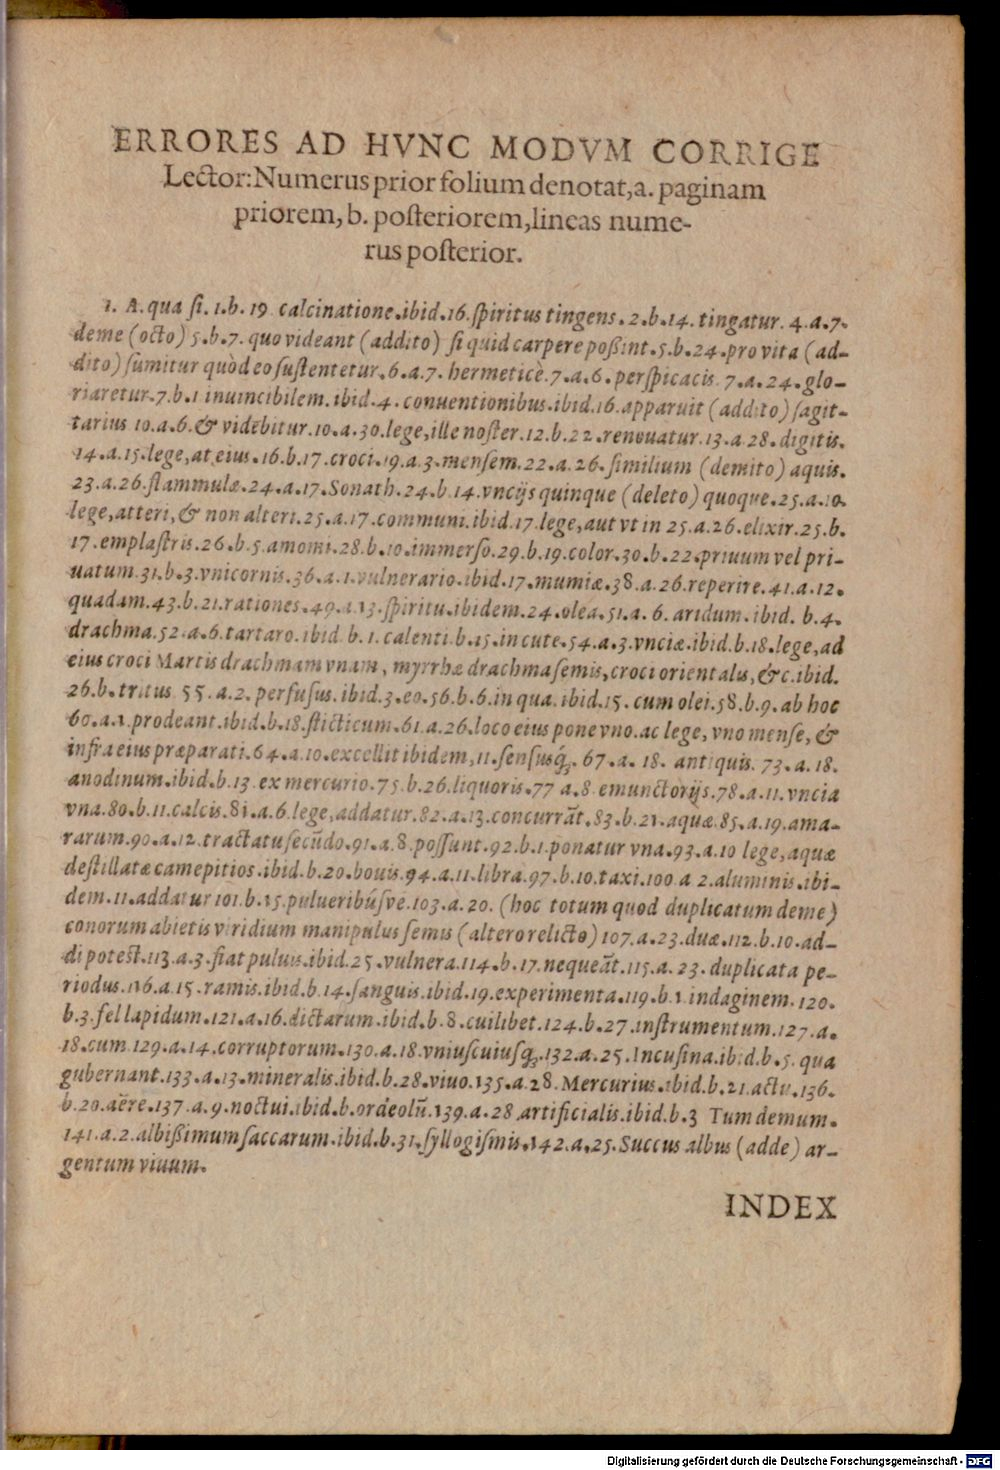 ERRORES AD HVNC MODVM CORRIGE
Lector:Numerus prior folium denotat,a. paginam
priorem, b. posteriorem,lineas nume-
rus posterior.
1. A. qua si. 1.b. 19 calcinatione.ibid.16.spiritus tingens. 2.b.14. tingatur. 4.a.7.
deme (octo) 5.b.7. quo videant (addito) si quid carpere poßint.5.b.24.pro vita (ad-
dito) sumitur quòd eo sustentetur.6.a.7. hermeticè.7.a.6.perspicacis. 7.a.24.glo-
riaretur.7.b.1 inuincibilem.ibid.4. conuentionibus.ibid.16.apparuit (addito) sagit-
tarius 10.a.6.& videbitur.10.a.30.lege,ille noster.12.b.22.renouatur.13.a.28.digitis.
14.a.15.lege,at eius.16.b.17.croci.19.a.3.mensem.22.a.26.similium (demito) aquis.
23.a.26.flammulæ.24.a.17.Sonath.24.b.14.vncijs quinque (deleto) quoque.25.a.10.
lege,atteri,& non alteri.25.a.17.communi.ibid.17.lege,aut vt in 25.a.26.elixir.25.b.
17.emplastris.26.b.5.amomi.28.b.10.immerso.29.b.19.color.30.b.22.priuum vel pri-
uatum.31.b.3.vnicornis.36.a.1.vulnerario.ibid.17.mumiæ.38.a.26.reperire.41.a.12.
quadam.43.b.21.rationes.49.a.13.spiritu.ibidem.24.olea.51.a.6. aridum.ibid. b.4.
drachma.52.a.6.tartaro.ibid.b.1.calenti.b.15.in cute.54.a.3.vnciæ.ibid.b.18.lege,ad
eius croci Martis drachmam vnam, myrrhæ drachma semis,croci orientalis,&c.ibid.
26.b.tritus 55.a.2. perfusus.ibid.3.eo.56.b.6.in qua.ibid.15. cum olei.58.b.9. ab hoc
60.a.1.prodeant.ibid.b.18.sticticum.61.a.26.loco eius pone vno.ac lege, vno mense, &
infra eius præparati.64.a.10.excellit ibidem,11.sensusq́;. 67.a. 18. antiquis. 73.a.18.
anodinum.ibid.b.13 ex mercurio.75.b.26.liquoris.77 a.8 emunctorijs.78.a.11.vncia
vna.80.b.11.calcis.81.a.6.lege,addatur.82.a.13.concurrãt.83.b.21.aquæ.85.a.19.ama-
rarum.90.a.12.tractatu secũdo.91.a.8.possunt.92.b.1.ponatur vna.93.a.10 lege,aquæ
destillatæ camepitios.ibid.b.20.bouis.94.a.11.libra.97.b.10.taxi.100 a 2.aluminis.ibi-
dem.11.addatur 101.b.15.pulueribúsve.103.a.20. (hoc totum quod duplicatum deme)
conorum abietis viridium manipulus semis (altero relicto) 107.a.23.duæ.112.b.10.ad-
di potest.113.a.3.fiat puluis.ibid.25.vulnera.114.b.17.nequeãt.115.a. 23. duplicata pe-
riodus.116.a.15.ramis.ibid.b.14.sanguis.ibid.19.experimenta.119.b.1 indaginem.120.
b.3.fel lapidum.121.a.16.dictarum.ibid.b.8.cuilibet.124.b.27.instrumentum.127.a.
18.cum.129.a.14.corruptorum.130.a.18.vniuscuiusq;.132.a.25.Incusina.ibid.b.5.qua
gubernant.133.a.13.mineralis.ibid.b.28.viuo.135.a.28.Mercurius.ibid.b.21.actu.136.
b.20.aëre.137.a.9.noctui.ibid.b.ordeolũ.139.a.28 artificialis.ibid.b.3 Tum demum.
141.a.2.albißimum saccarum.ibid.b.31.syllogismis.142.a.25.Succus albus (adde) ar-
gentum viuum.
INDEX
Digitalisierung gefördert durch die Deutsche Forschungsgemeinschaft - DFG